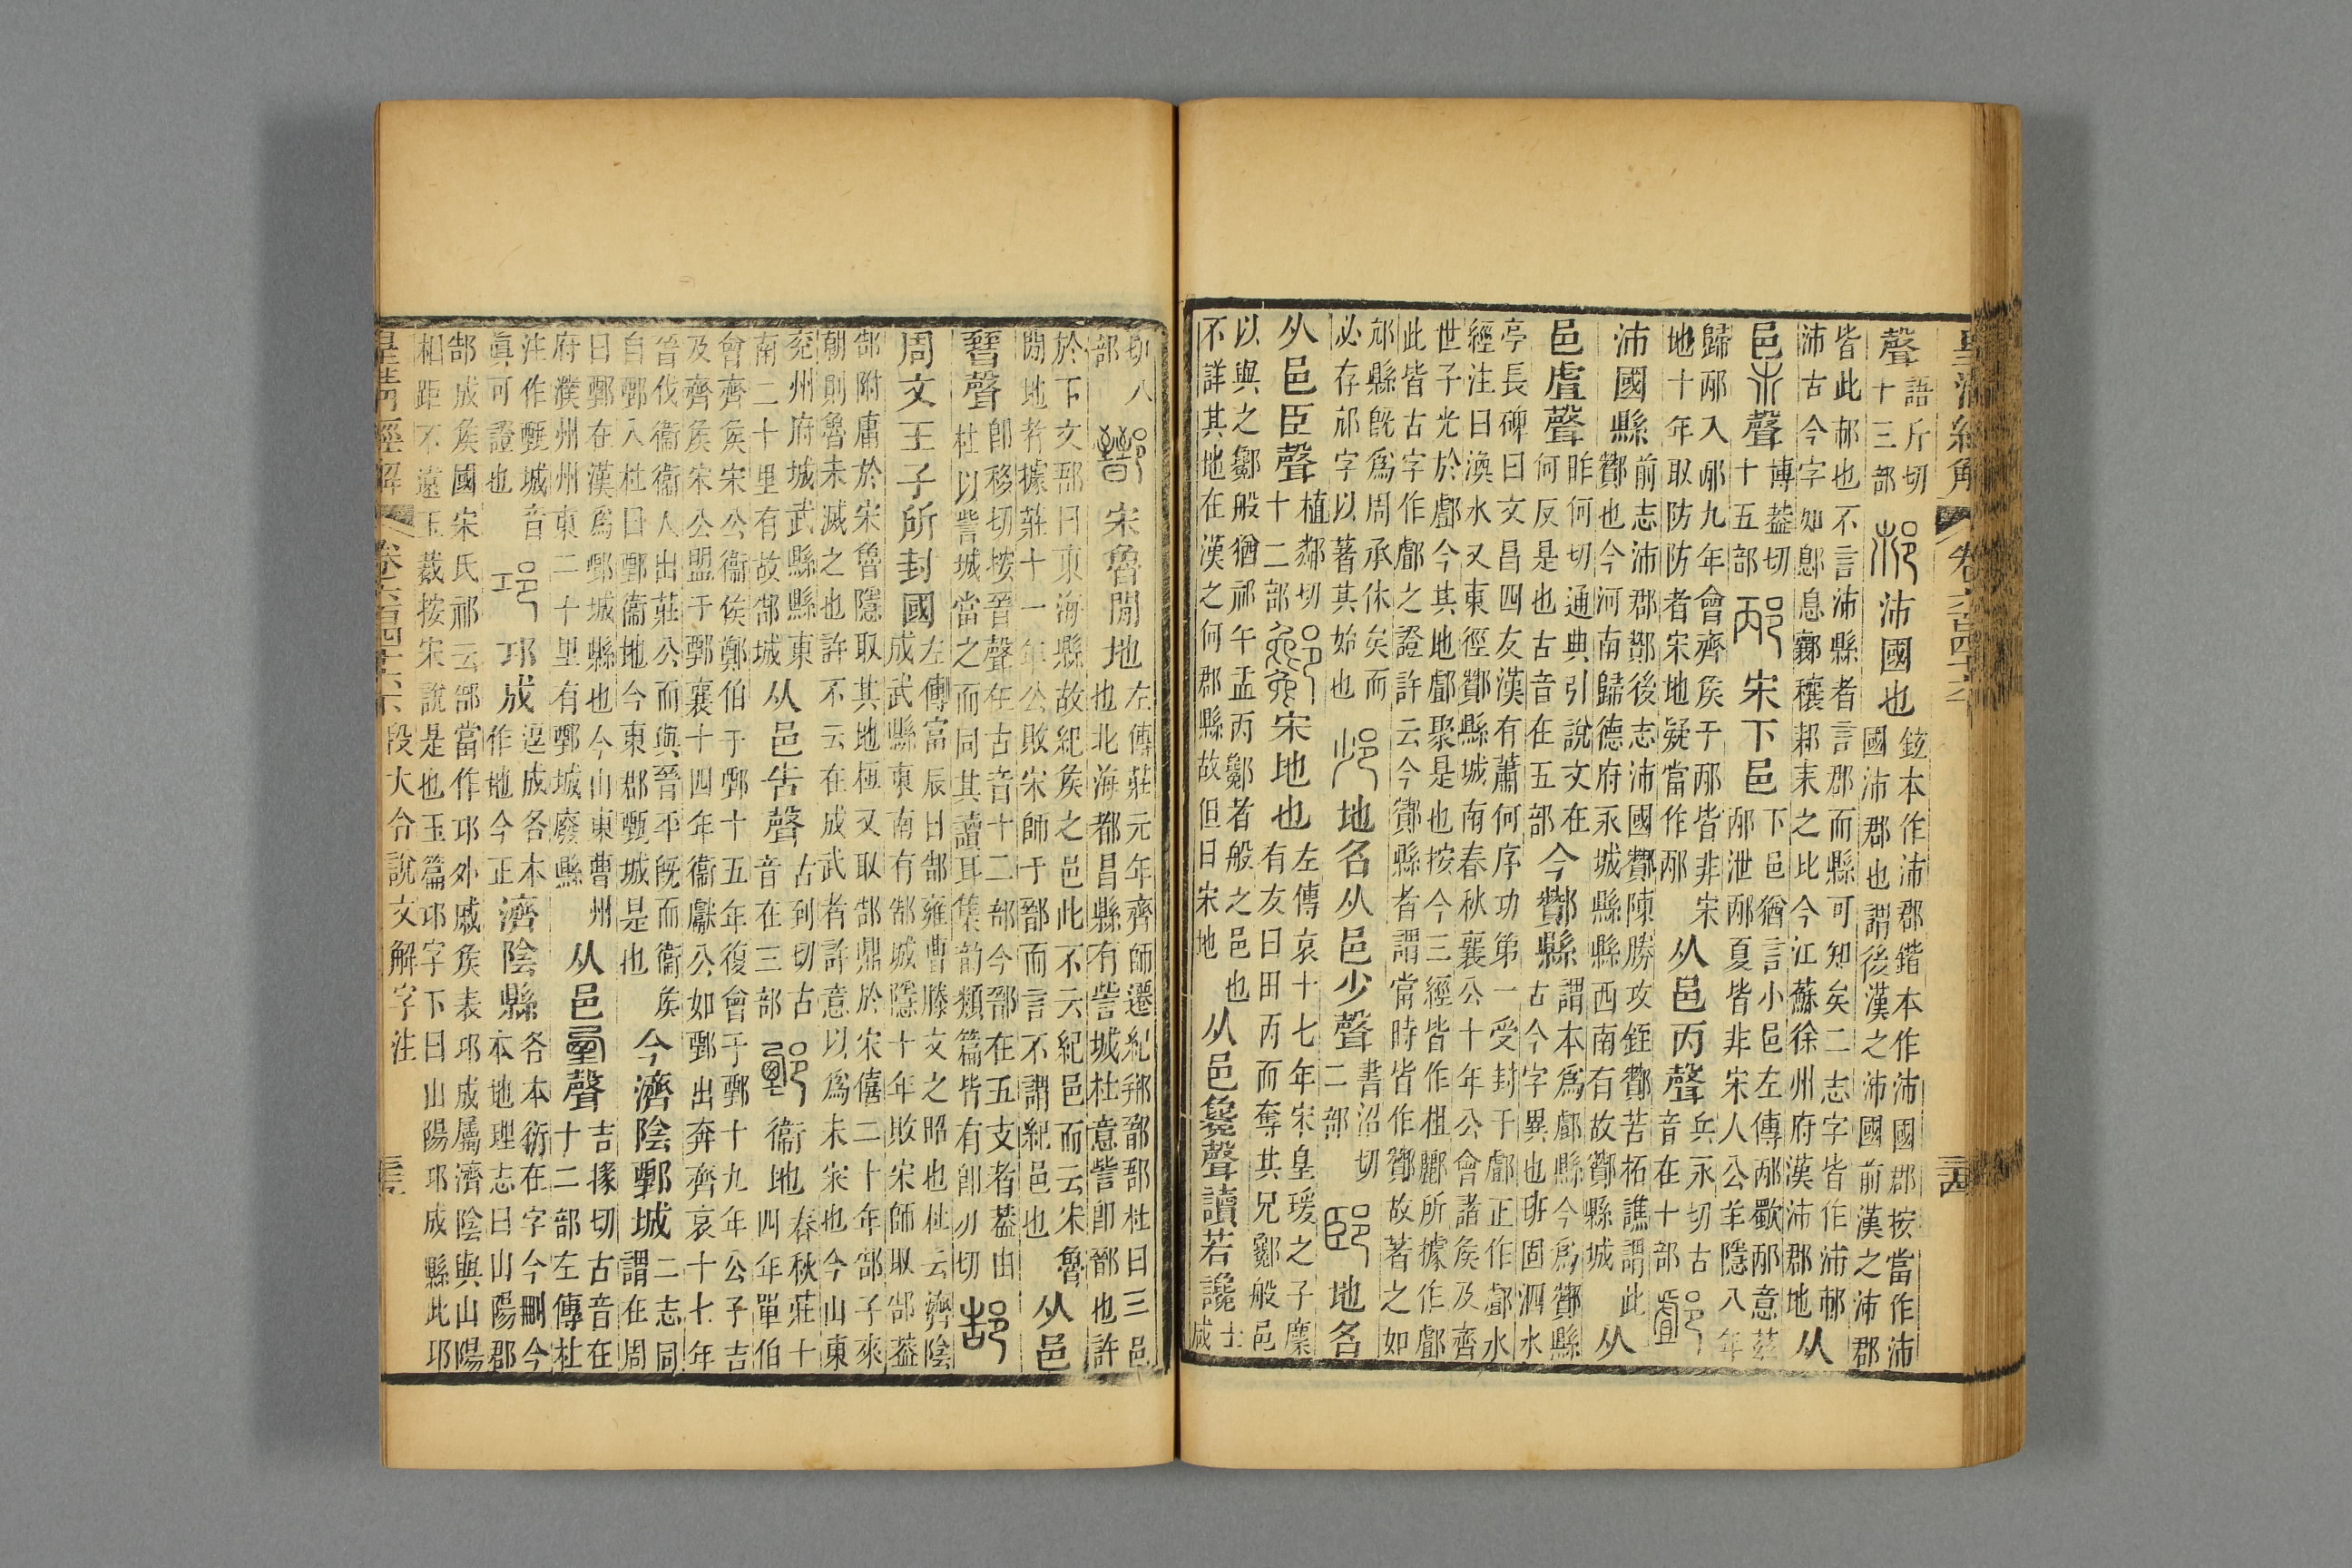 皇清經解 卷六百四十六 三四
聲
語斤切
十三部
沛國也
鉉本作沛郡鍇本作沛國郡按當作沛
國沛郡也謂後漢之沛國前漢之沛郡
皆此也不言沛縣者言郡而縣可知矣二志字皆作沛
沛古今字如鄎息穰之比今江蘇徐州府漢沛郡地
从
邑巿聲
博蓋切
十五部
邴宋下邑
下邑猶言小邑左傳邴歜邴意茲
邴泄邴夏皆非宋人公羊隱八年
歸邴入邴九年會齊矦于邴皆非宋
地十年取防防者宋地疑當作邴
从邑丙聲
兵永切古
音在十部
䣜
沛國縣
前志沛郡酇後志沛國酇陳勝攻銍酇苦柘譙謂此
酇也今河南歸德府永城縣縣西南有故酇縣城
从
邑虘聲
昨何切通典引說文在
何反是也古音在五部
今酇縣
謂本爲䣜縣今爲酇縣
古今字異也班固泗水
亭長碑曰文昌四友漢有蕭何序功第一受封于䣜正作䣜水
經注曰渙水又東徑酇縣城南春秋襄公十年公會諸矦及齊
世子光於䣜今其地䣜聚是也按今三經皆作柤酈所據作䣜
此皆古字作䣜之證許云今酇縣者謂當時皆作酇故著之如
邟縣旣爲周承休矣而
必存邟字以著其始也
地名从邑少聲
書沼切
二部
地名
从邑臣聲
植鄰切
十二部
酁宋地也
左傳哀十七年宋皇瑗之子麇
有友曰田丙而奪其兄酁般邑
以與之酁般猶祁午盂丙酁者般之邑也
不詳其地在漢之何郡縣故但曰宋地
从邑毚聲讀若讒
士
咸
切八
部
鄑宋魯閒地
左傳莊元年齊師遷紀郱鄑郚杜曰三邑
也北海都昌縣有訾城杜意訾卽鄑也許
於下文郚曰東海縣故紀矦之邑此不云紀邑而云宋魯
閒地者據莊十一年公敗宋師于鄑而言不謂紀邑也
从邑
晉聲
卽移切按晉聲在古音十二部今鄑在五支者葢由
杜以訾城當之而同其讀耳集韵類篇皆有卽刃切
郜
周文王子所封國
左傳富辰曰郜雍曹滕文之昭也杜云濟陰
成武縣東南有郜城隱十年敗宋師取郜葢
郜附庸於宋魯隱取其地桓又取郜鼎於宋僖二十年郜子來
朝則魯未滅之也許不云在成武者許意以爲未宋也今山東
兖州府城武縣縣東
南二十里有故郜城
从邑告聲
古到切古
音在三部
鄄衞地
春秋莊十
四年單伯
會齊矦宋公衞矦鄭伯于鄄十五年復會于鄄十九年公子吉
及齊矦宋公盟于鄄襄十四年衞獻公如鄄出奔齊哀十七年
晉伐衞衞人出莊公而與晉平旣而衞矦
自鄄入杜曰鄄衞地今東郡甄城是也
今濟陰鄄城
二志同
謂在周
曰鄄在漢爲鄄城縣也今山東曹州
府濮州州東二十里有鄄城廢縣
从邑垔聲
吉掾切古音在
十二部左傳杜
注作甄城音
眞可證也
邛邛成
逗成各本
作地今正
濟陰縣
各本衍在字今刪今
本地理志曰山陽郡
郜成矦國宋氏祁云郜當作邛外戚矦表邛成屬濟陰與山陽
相距不遠玉裁按宋說是也玉篇邛字下曰山陽邛成縣此邛
皇清經解 卷六百四十六 段大令說文解字注 三五